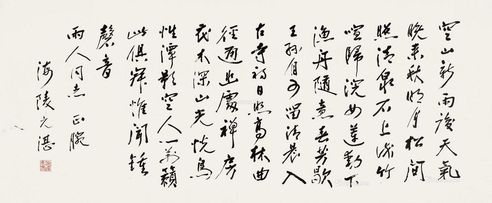 空山新雨後天氣
晚来秋明月松間
照清泉石上流竹
喧歸浣女蓮動下
漁舟隨意春芳歇
王孫自可留清晨入
古寺初日照高林曲
徑通幽處禪房
花木深山光悦鳥
性潭影空人心萬籟
此俱寂惟聞鐘
磬音
雨人同志正腕
海陵元湛